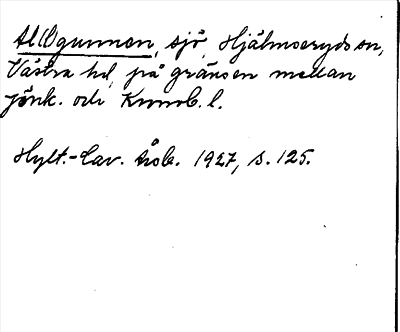 Allgunnen, sjö, Hjälmseryds sn,
Västra hd, på gränsen mellan
Jönk. och Kronob. l.
Hylt.-Cav. håb. 1927, s. 125.